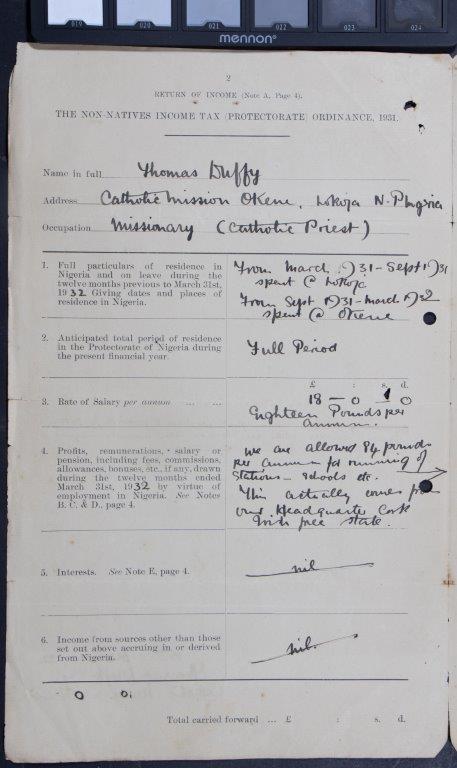 019 020 021 022 023 024
mennon
2
RETURN OF INCOME (Note A, Page 4).
THE NON-NATIVES INCOME TAX (PROTECTORATE) ORDINANCE, 1931.
Name in full Thomas Duffy
Address Catholic Mission Okene, Lokoja N. P
Occupation Missionary (Catholic Priest)
1. Full particulars of residence in
Nigeria and on leave during the
twelve months previous to March 31st,
1932 Giving dates and places of
residence in Nigeria.
From March 1931 - Sept 1931
spent @ Lokoja
From Sept 1931 - March 1932
spent @ Okene
2. Anticipated total period of residence
in the Protectorate of Nigeria during
the present financial year.
Full Period
3. Rate of Salary per annum ... ...
£ : s. d.
18 — 0 0
Eighteen Pounds per
annum.
4. Profits, remunerations, salary or
pension, including fees, commissions,
allowances, bonuses, etc., if any, drawn
during the twelve months ended
March 31st, 1932 by virtue of
employment in Nigeria. See Notes
B. C. & D., page 4.
We are allowed 84 pounds
per annum for running of
Stations - Schools etc.
This actually comes from
our Headquarter Cork
Irish free State.
5. Interests. See Note E, page 4.
nil
6. Income from sources other than those
set out above accruing in or derived
from Nigeria.
nil.
Total carried forward ... £ : s. d.